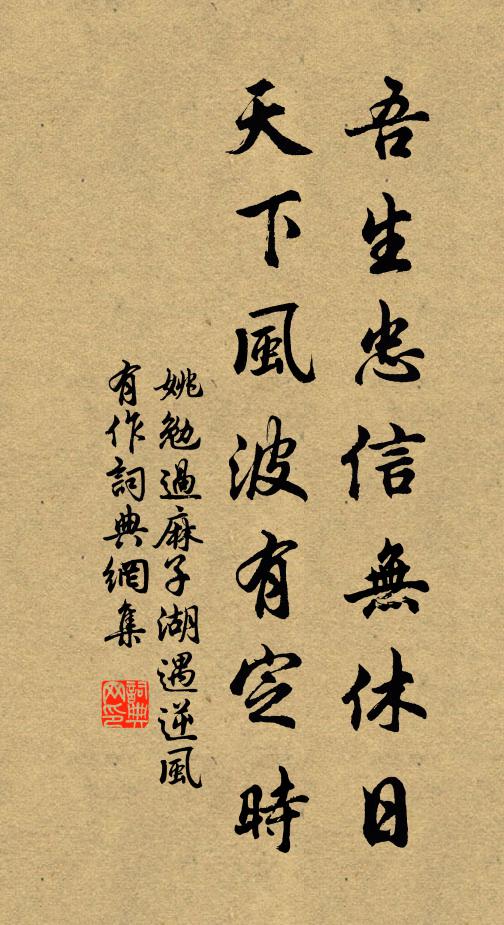 吾生忠信無休日
天下風波有定時
姚勉過麻子湖遇逆風
有作詞典網集
詞典
网印